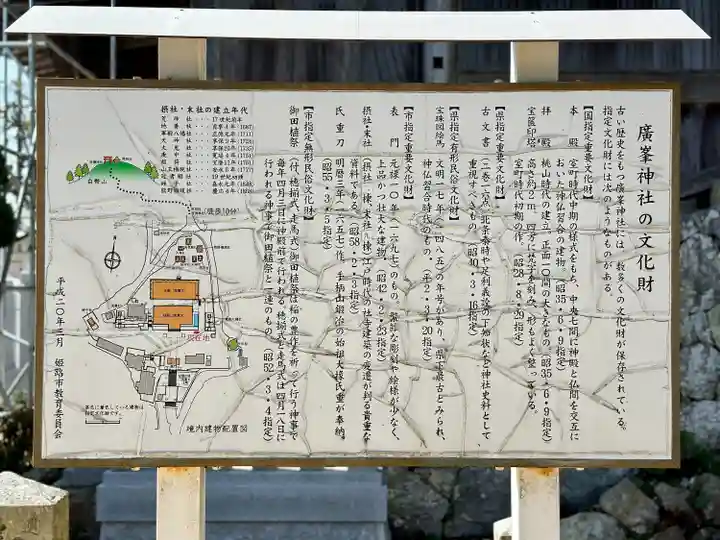 廣峯神社の文化財
古い歴史をもつ廣峯神社には、数多くの文化財が保存されている。
指定文化財には次のようなものがある。
【国指定重要文化財】
本殿　室町時代中期の様式をもち、中央七間に神殿と仏間を交互に
おいた神仏習合の建物。（昭35・6・9指定）
拝殿　桃山時代の建立。正面一〇間の大きなもの。（昭35・6・9指定）
宝篋印塔　高さ約2m、四方に梵字を刻み、形もよく整っている。
室町時代初期の作。（昭28・8・29指定）
【県指定重要文化財】
古文書（二巻二六点）北条泰時や足利義詮の下知状など神社史料として
重視すべきもの。（昭40・3・16指定）
【県指定有形民俗文化財】
宝珠図絵馬　文明一七年（一四八五）の年号があり、県下最古とみられ、
神仏習合時代のもの。（平2・3・20指定）
【市指定重要文化財】
表門　元禄一〇年（一六九七）のもの。繁飾な彫刻や絵様が少なく、
上品かつ壮大な建物。（昭42・2・23指定）
摂社・末社（摂社一棟、末社八棟）江戸時代の社寺建築の変遷が判る貴重な
資料である。（昭58・2・3指定）
氏重刀　明暦三年（一六五七）作。手柄山鍛冶の始祖大掾氏重が奉納。
（昭55・3・5指定）
【市指定無形民俗文化財】
御田植祭（付、穂揃式、走馬式）御田植祭は稲の豊作を祈って行う神事で
毎年四月三日に神殿前で行われる。穂揃式と走馬式は四月一八日に
行われる神事で御田植祭と一連のもの。（昭52・3・4指定）
平成二〇年三月　姫路市教育委員会
摂社・末社の建立年代
白幣山
（徒歩10分）
現在地
境内建物配置図